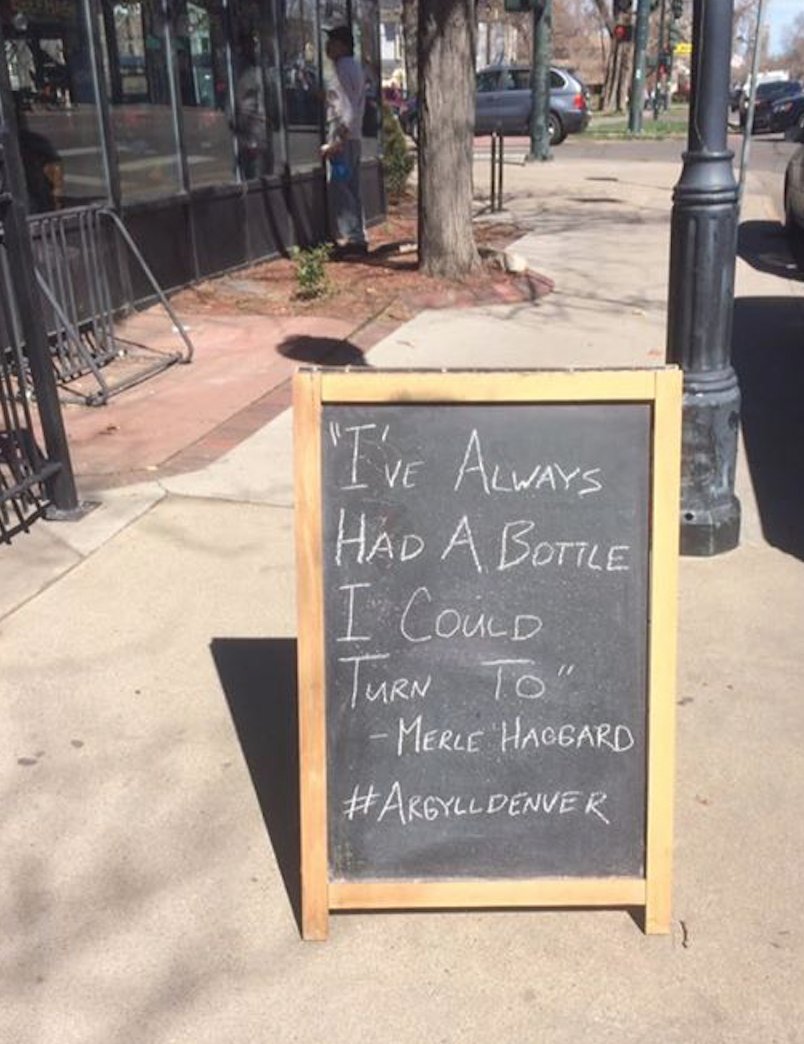 "I've Always
Had A Bottle
I Could
Turn To"
- Merle Haggard
#Argylldenver